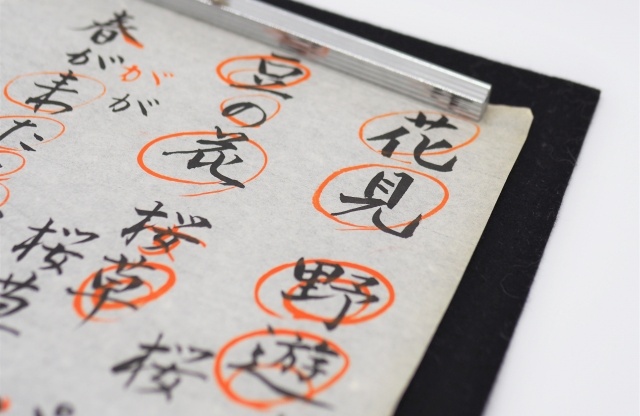 花見
野遊
豆の花
桜草
桜
が
が
春が来た
桜草